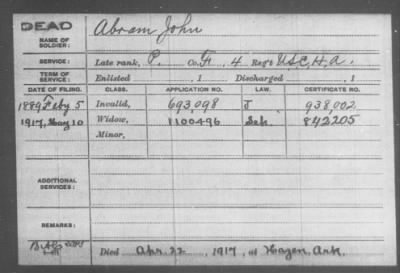 DEAD
NAME OF SOLDIER: Abram John
SERVICE: Late rank, P. Co. F, 4 Reg't U.S.C.H.A.
TERM OF SERVICE: Enlisted , 1 Discharged , 1
DATE OF FILING. CLASS. APPLICATION NO. LAW. CERTIFICATE NO.
1889 Feby 5 Invalid, 693,098 J 938,002
1917, May 10 Widow, 1100496 842205
Minor,
ADDITIONAL SERVICES:
REMARKS:
Died Apr. 22, 1917, at Hazen, Ark.